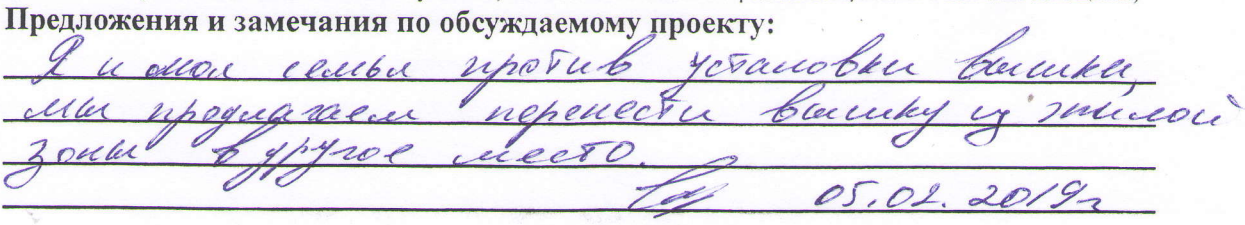 Предложения и замечания по обсуждаемому проекту:
Я и моя семья против установки вышки,
мы предлагаем перенести вышку из жилой
зоны в другое место.
05.02.2019г